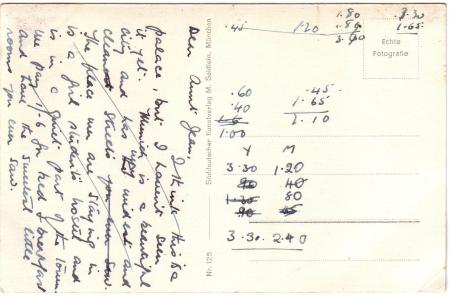 Dear Aunt Jean,
I think this is a
palace, but I haven't seen
it yet. Munich is a beautiful
city and has the widest and
cleanest streets you ever saw.
The place we are staying in
is a girl student's hostel and
is in a good part of the town.
We pay for bed & breakfast
and have the sweetest little
rooms you ever saw.
Nr. 125
Süddeutscher Kunstverlag M. Seidlein, München
Echte
Fotografie
.45
1.20
1.80
3.30
1.65
.60
.40
1.00
.45
1.65
2.10
Y M
3.30 1.20
90 40
1.30 80
90
3.30 2.40